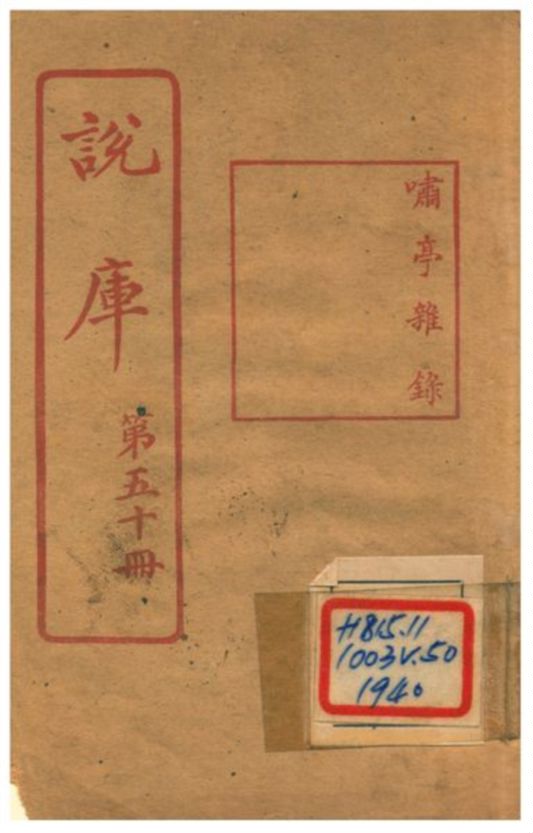 嘯亭雜錄
說庫
第五十冊
H815.11
1003V.50
1940